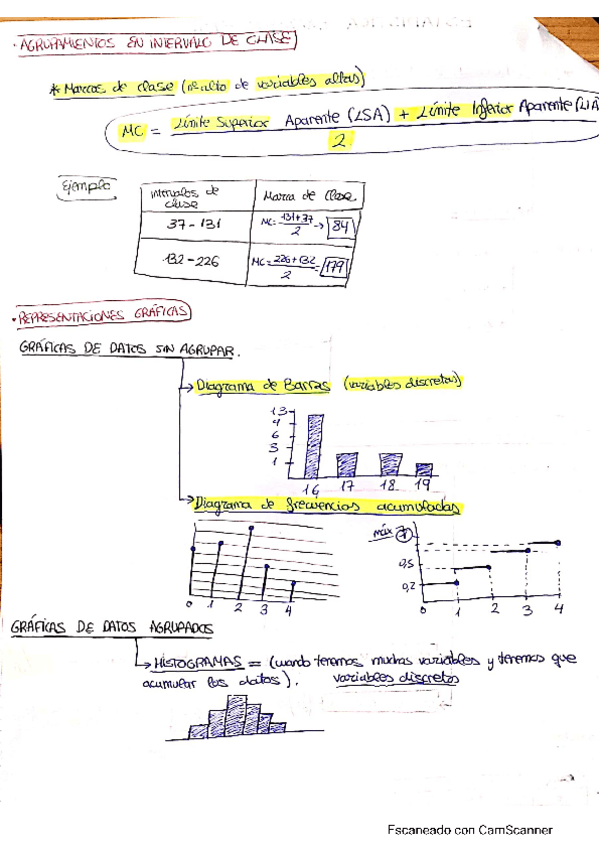 · AGRUPAMIENTOS EN INTERVALO DE CLASE
* Marcas de clase (resalto de variables altas)
MC = Límite Superior Aparente (LSA) + Límite Inferior Aparente (LIA
2
Ejemplo
Intervalos de clase
Marca de Clase
37 - 131
MC = 131+37 / 2 → 84
132 - 226
MC = 226+132 / 2 = 179
· REPRESENTACIONES GRÁFICAS
GRÁFICAS DE DATOS SIN AGRUPAR.
→ Diagrama de Barras (variables discretas)
13
9
6
3
1
16 17 18 19
→ Diagrama de frecuencias acumuladas
0 1 2 3 4
máx
0,5
0,2
0 1 2 3 4
GRÁFICAS DE DATOS AGRUPADOS
→ HISTOGRAMAS = (cuando tenemos muchas variables y tenemos que
acumular los datos). variables discretas
Escaneado con CamScanner